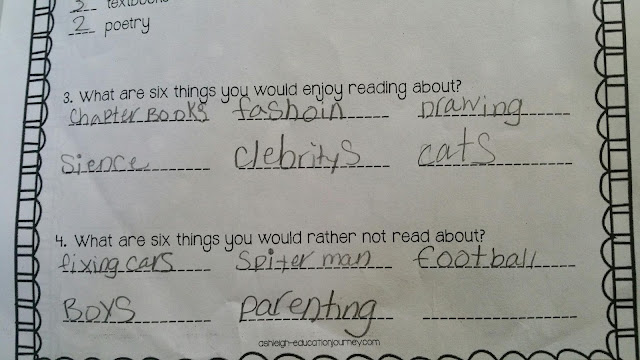 3 textbooks
2 poetry
3. What are six things you would enjoy reading about?
Chapter Books fashoin Drawing
Sience Clebritys cats
4. What are six things you would rather not read about?
fixing cars Spiter man football
Boys parenting
ashleigh-educationjourney.com